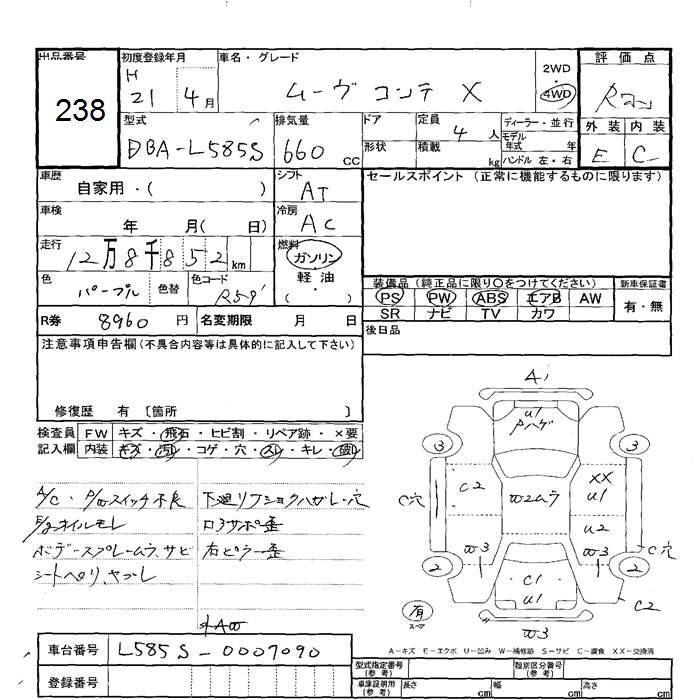 出品番号 初度登録年月 車名・グレード 2WD 評価点
238 H 21 4月 ムーヴ コンテ X 4WD
型式 排気量 ドア 定員 4人 ディーラー・並行 外装 内装
DBA-L585S 660cc 形状 積載 kg モデル年式 年 ハンドル 左・右 E C
車歴 シフト セールスポイント (正常に機能するものに限ります)
自家用・( ) AT
車検 年 月( 日) 冷房 AC
走行 12万8千852km 燃料 ガソリン
色 パープル 色替 色コード R59 軽油・( )
装備品(純正品に限り〇をつけてください) 新車保証書
PS PW ABS エアB AW 有・無
SR ナビ TV カワ
R券 8960円 名変期限 月 日 後日品
注意事項申告欄(不具合内容等は具体的に記入して下さい)
修復歴 有 〔箇所 〕
検査員 FW キズ・飛石・ヒビ割・リペア跡・×要
記入欄 内装 キズ・汚レ・コゲ・穴・スレ・キレ・破レ
A/C・P/Wスイッチ不良 下廻リフショクハガレ・穴
E/gオイルモレ ロ3サポ歪
ボデースプレームラ、サビ 右ピラー歪
シートヘタリ、ヤブレ
外AW
A1
U1
Pハゲ
3 3
C2 XX
U1
C穴 W2ムラ
U2
W3 W3 C穴
2 2
C1
U1 C2
有
スペア
W3
A－キズ E－エクボ U－凹み W－補修跡 S－サビ C－腐食 XX－交換済
車台番号 L585S-0007090
登録番号
型式指定番号(参考) 類別区分番号(参考)
車庫証明用(参考) 長さ cm 幅 cm 高さ cm